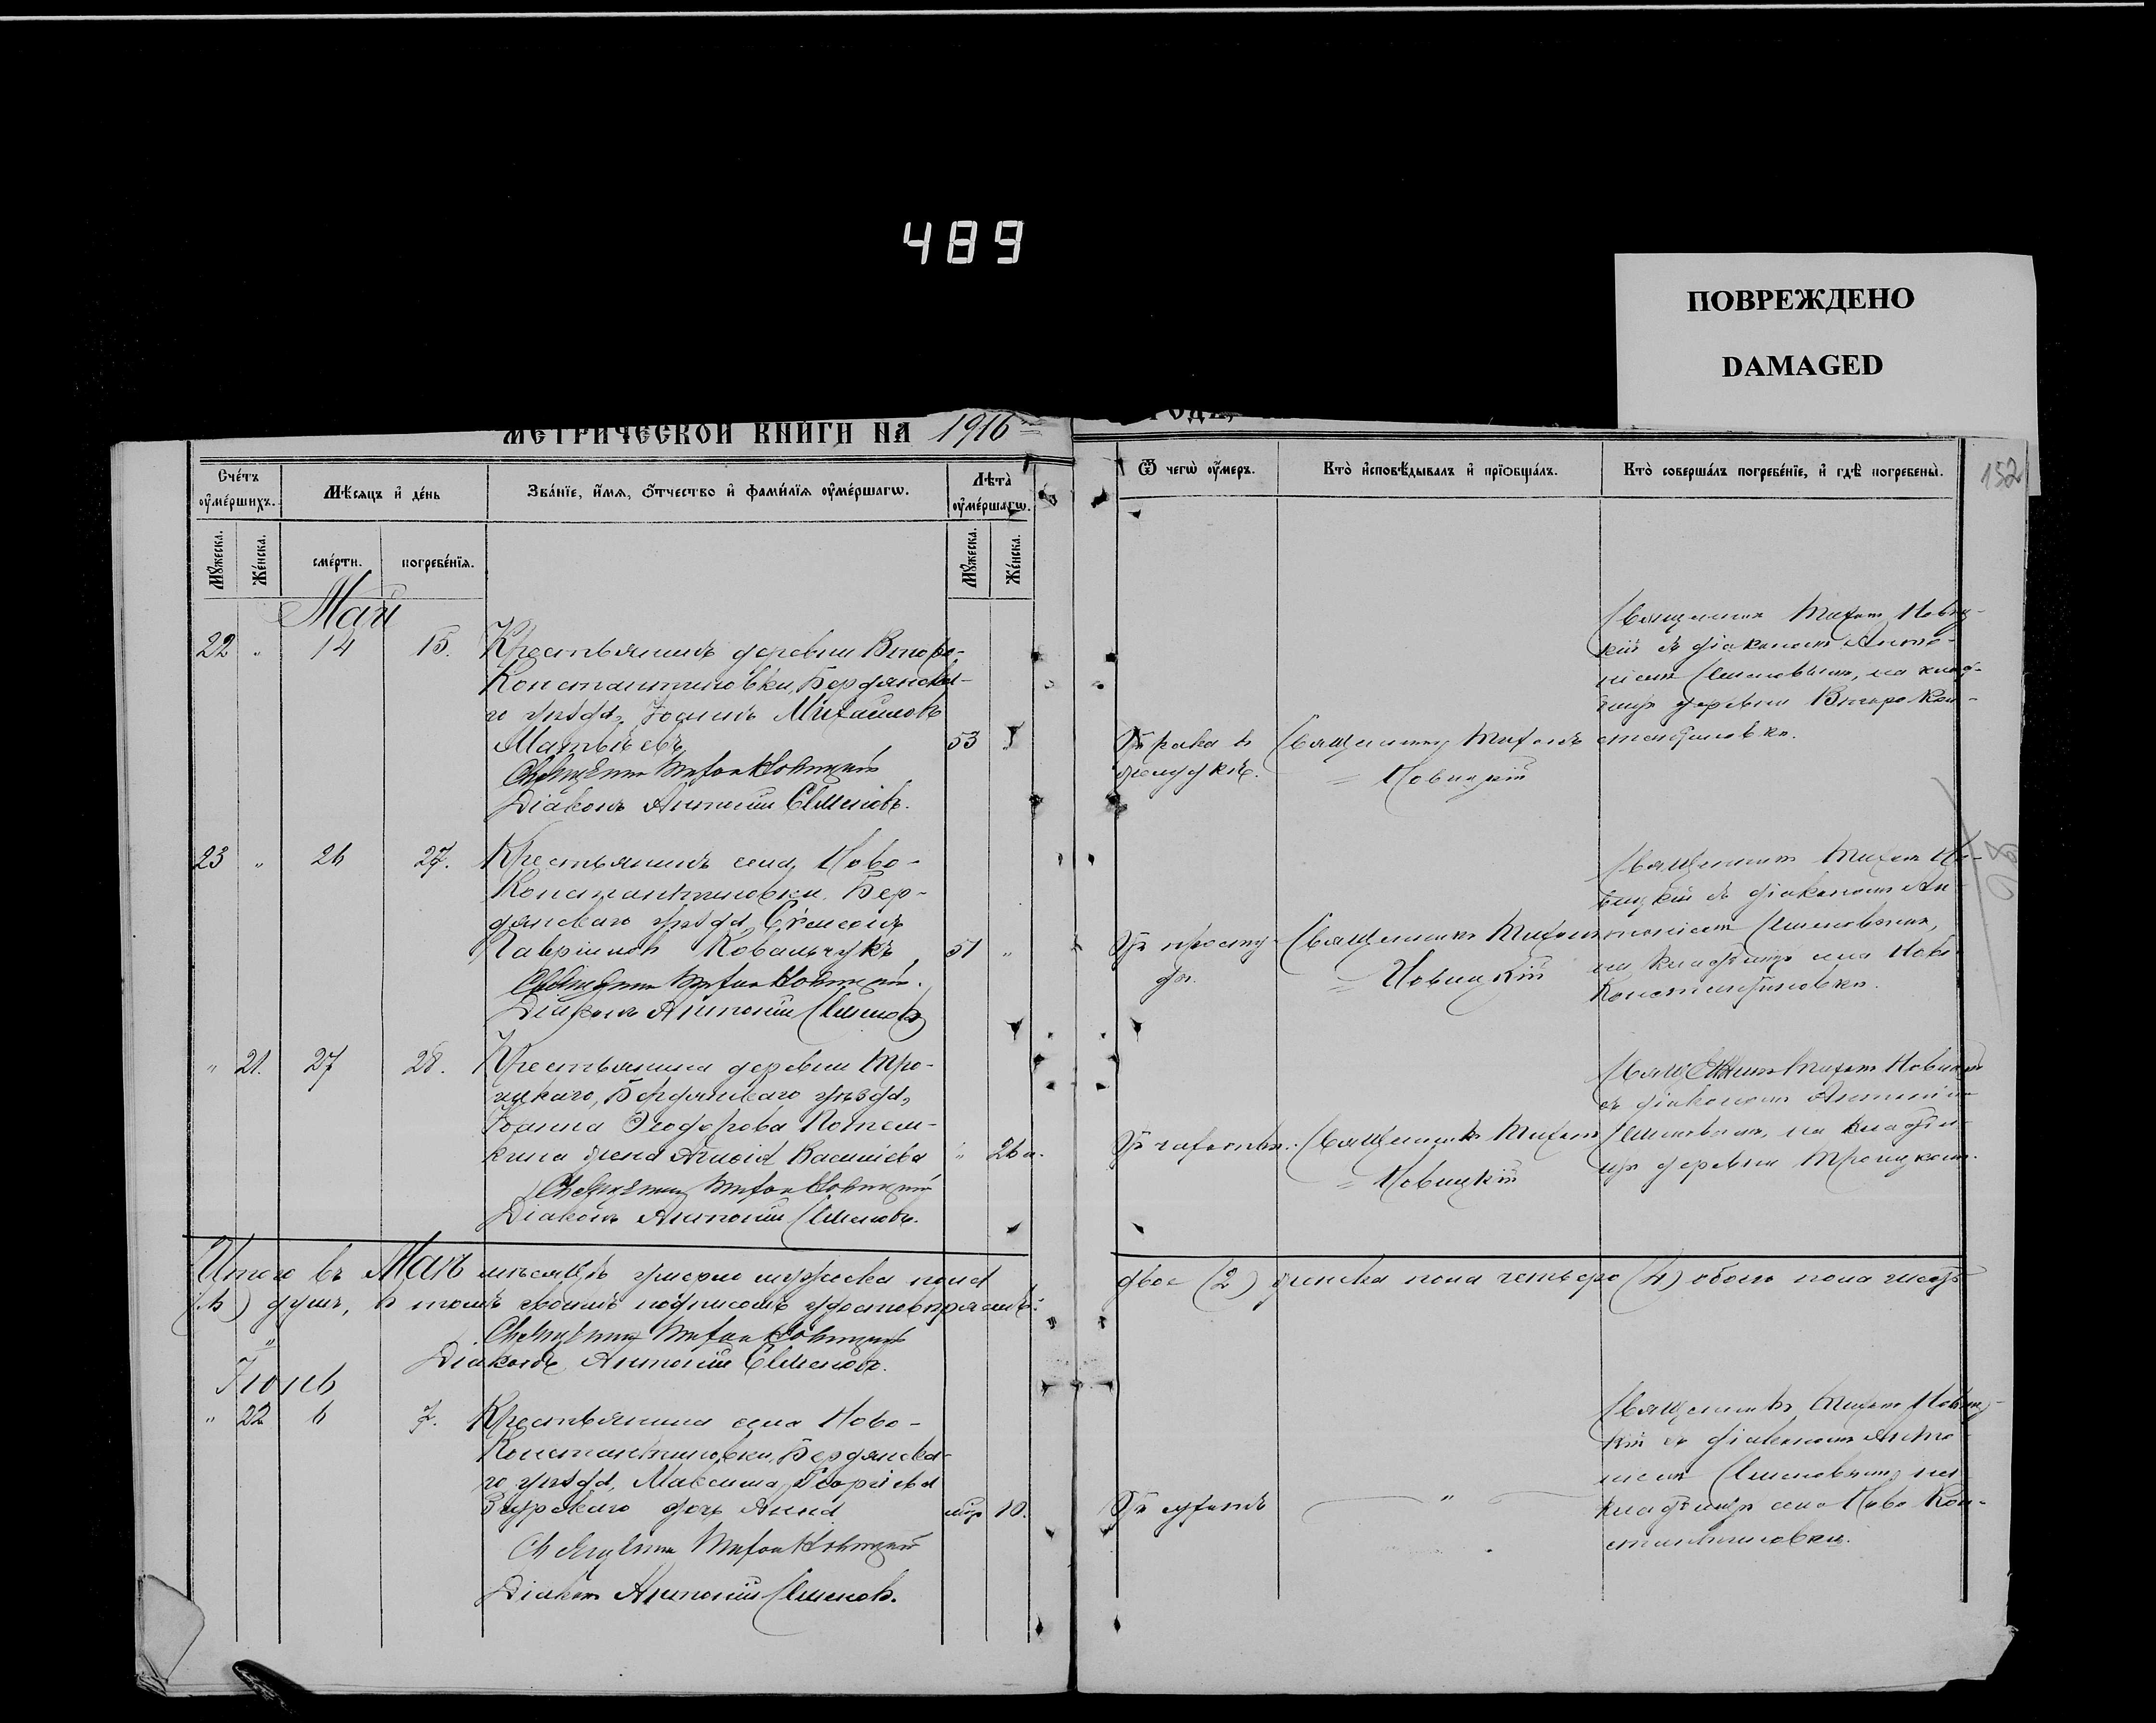 489
ПОВРЕЖДЕНО
DAMAGED
МЕТРИЧЕСКОЙ КНИГИ НА 1916
152
Счéтъ ᲂумéршихъ.
Мѣсяцъ и҆ дéнь
Звáнїе, и҆́мя, ѻ҆́тчество и҆ фамѝлїя ᲂумéршагѡ.
Лѣта̀ ᲂумéршагѡ.
Мꙋжеска.
Жéнска.
смéрти.
погребéнїя.
Мꙋжеска.
Жéнска.
Ѿ чегѡ̀ ᲂу҆́меръ.
Кто̀ и҆сповѣ́дывалъ и҆ прїѻбщáлъ.
Кто̀ совершáлъ погребéнїе, и҆ гдѣ̀ погребены̀.
Май
22 " 14 15. Крестьянинъ деревни Второ-
Константиновки, Бердянска-
го уѣзда, Іоаннъ Михаиловъ
Матвѣевъ 53 "
Священникъ Михаилъ Новицкій
Діаконъ Антоній Семеновъ.
Отъ рака въ
желудкѣ.
Священникъ Михаилъ
Новицкій
Священникъ Михаилъ Новиц-
кій съ діакономъ Анто-
ніемъ Семеновымъ, на клад-
бищѣ деревни Второ Кон-
стантиновки.
23 " 26 27. Крестьянинъ села Ново-
Константиновки, Бер-
дянскаго уѣзда, Сѵмеонъ
Гавріиловъ Ковальчукъ 51 "
Священникъ Михаилъ Новицкій.
Діаконъ Антоній Семеновъ
Отъ просту-
ды.
Священникъ Михаилъ
Новицкій
Священникъ Михаилъ Но-
вицкій съ діакономъ Ан-
тоніемъ Семеновымъ,
на кладбищѣ села Ново
Константиновки.
" 21. 27 28. Крестьянина деревни Тро-
ицкаго, Бердянскаго уѣзда,
Іоанна Ѳеодорова Потем-
кина жена Агаѳія Василіева " 26 л.
Священникъ Михаилъ Новицкій
Діаконъ Антоній Семеновъ.
Отъ чахотки.
Священникъ Михаилъ
Новицкій
Священникъ Михаилъ Новицкій
съ діакономъ Антоніемъ
Семеновымъ, на кладби-
щѣ деревни Троицкаго.
Итого въ Маѣ мѣсяцѣ умерло мужеска пола двое (2) женска пола четверо (4) обоего пола шесть
(6) душъ, въ томъ своимъ подписомъ удостовѣряемъ:
Священникъ Михаилъ Новицкій
Діаконъ Антоній Семеновъ.
Іюнь
" 22 6 7. Крестьянина села Ново-
Константиновки, Бердянска-
го уѣзда, Максима Георгіева
дочь Анна 10.
Священникъ Михаилъ Новицкій
Діаконъ Антоній Семеновъ.
"
Священникъ Михаилъ Новиц-
кій съ діакономъ Анто-
ніемъ Семеновымъ, на
кладбищѣ села Ново Кон-
стантиновки.